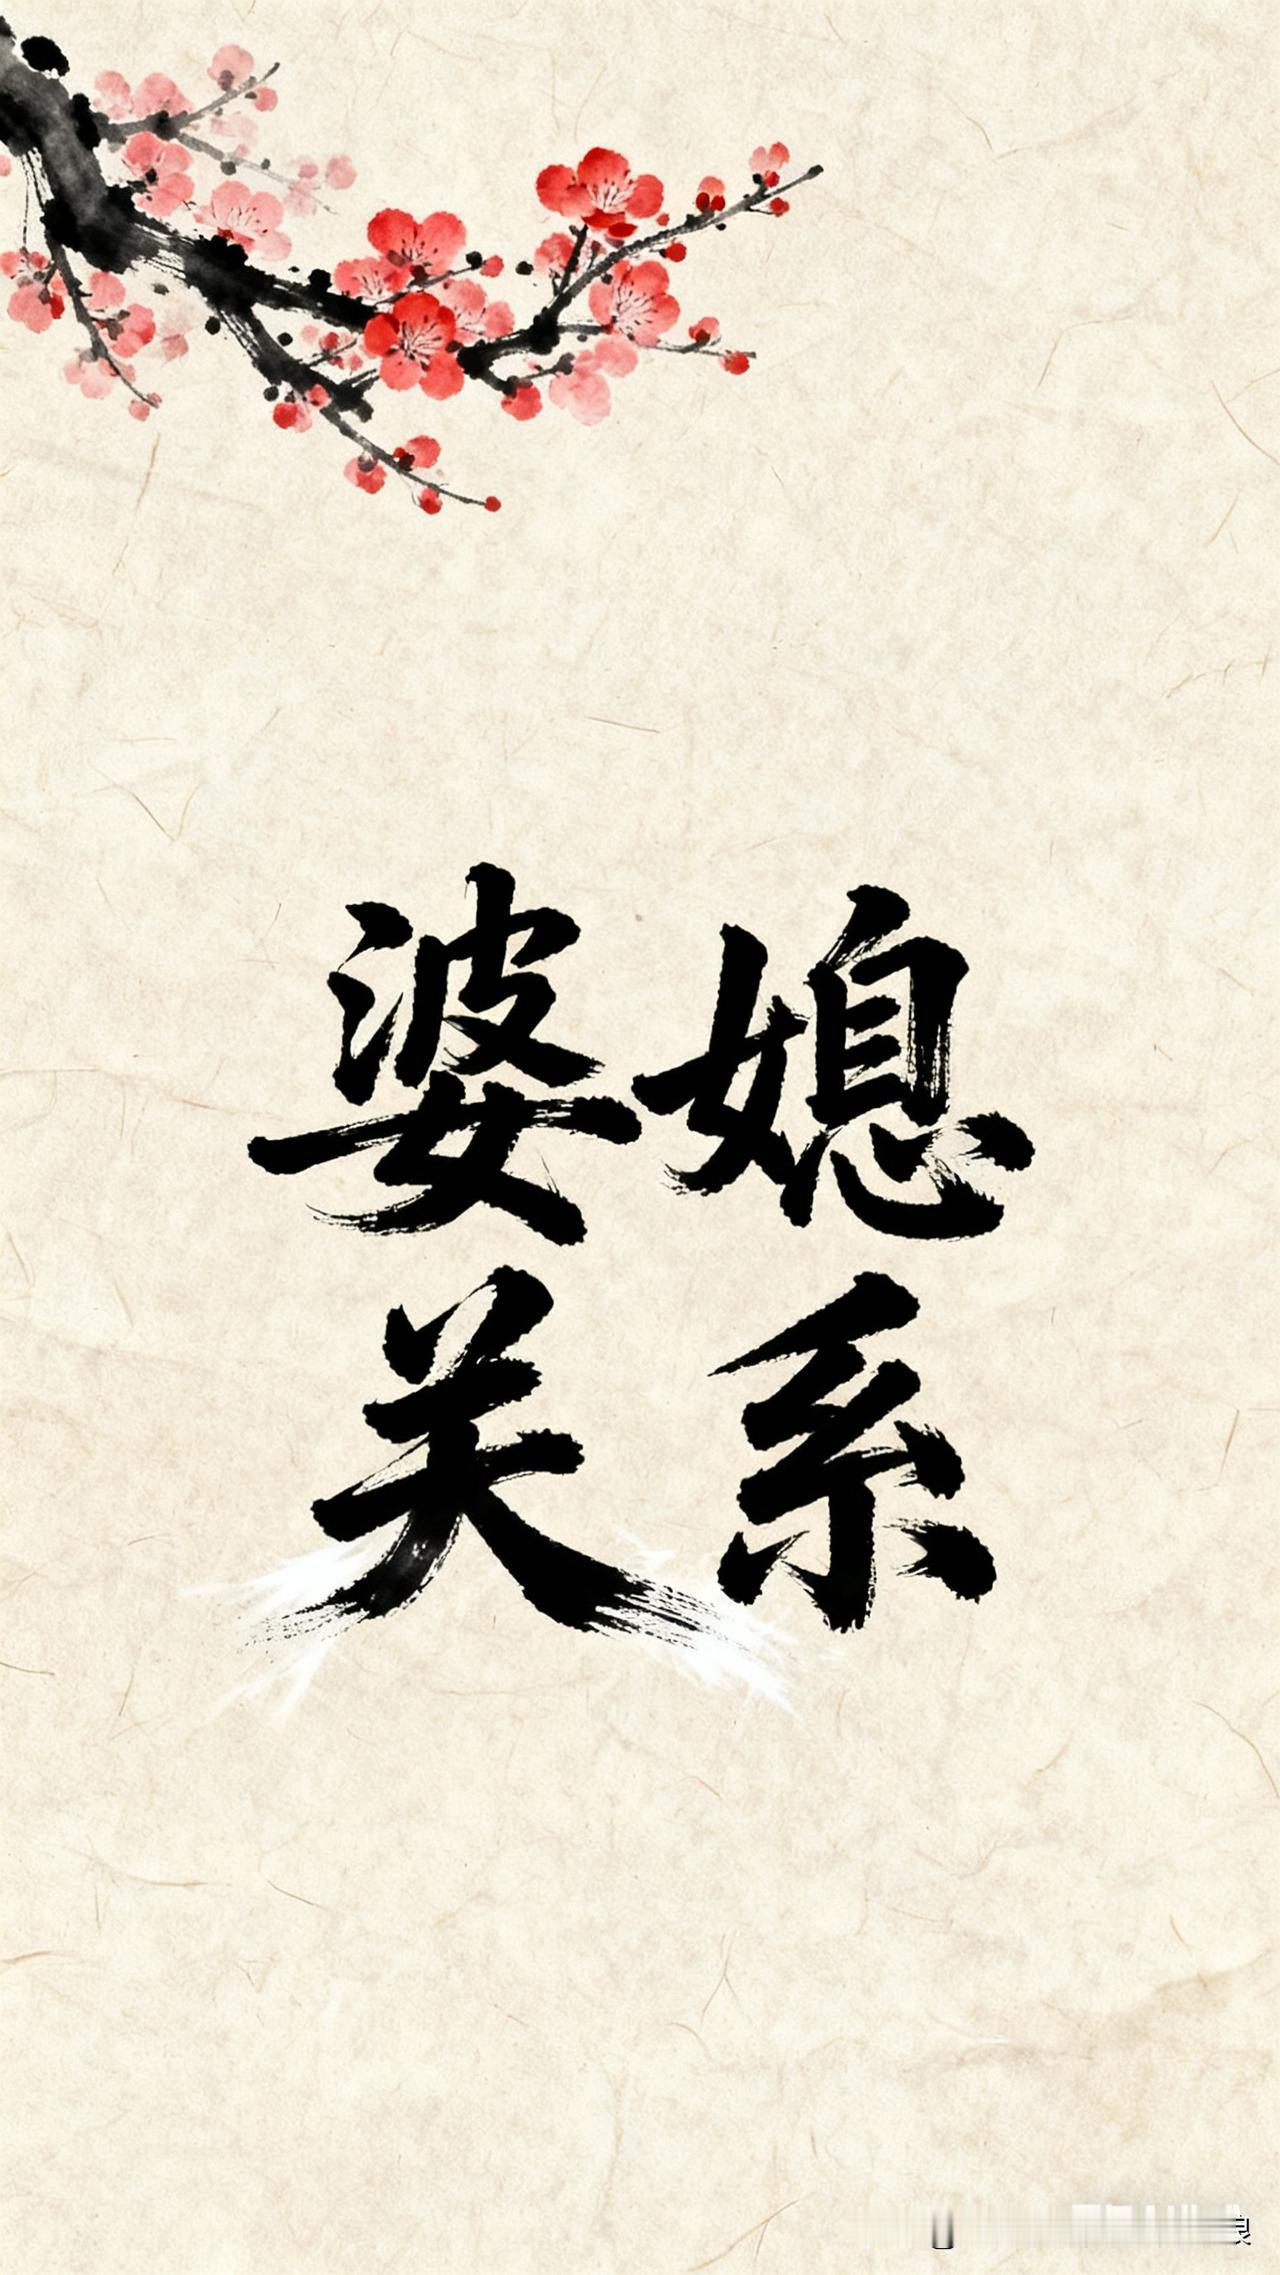 婆媳
关系